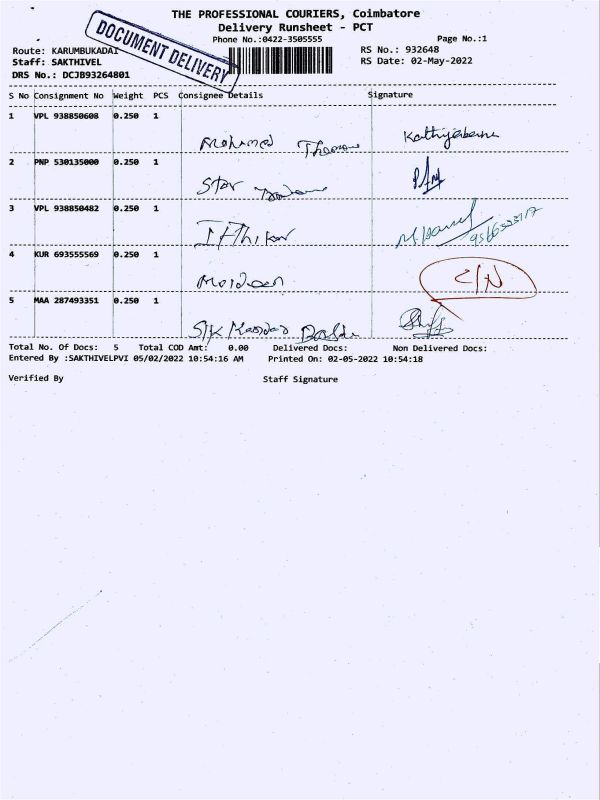 THE PROFESSIONAL COURIERS, Coimbatore
Delivery Runsheet - PCT
DOCUMENT DELIVERY
Phone No.:0422-3505555
Page No.:1
Route: KARUMBUKADAI
RS No.: 932648
Staff: SAKTHIVEL
RS Date: 02-May-2022
DRS No.: DCJB93264801
S No Consignment No Weight PCS Consignee Details Signature
1 VPL 938850608 0.250 1
Mohamed
2 PNP 530135000 0.250 1
Star
3 VPL 938850482 0.250 1
Ifthikar
4 KUR 693555569 0.250 1
Moideen C/N
5 MAA 287493351 0.250 1
Total No. Of Docs: 5 Total COD Amt: 0.00 Delivered Docs: Non Delivered Docs:
Entered By :SAKTHIVELPVI 05/02/2022 10:54:16 AM Printed On: 02-05-2022 10:54:18
Verified By Staff Signature